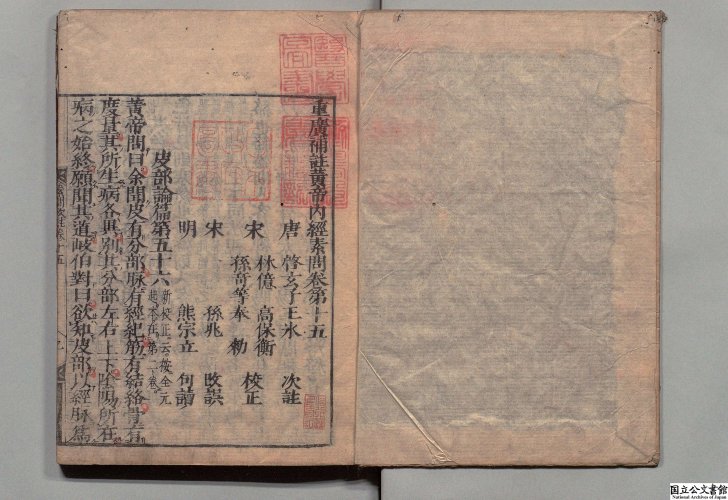 重廣補註黃帝內經素問卷第十五
唐 啓玄子王氷 次註
宋 林億 高保衡
孫竒等奉 勅 校正
宋 孫兆 改誤
明 熊宗立 句讀
皮部論篇第五十六 新校正云按全元
起本在第二卷
黃帝問曰余聞皮有分部脉有經紀筋有結絡骨有
度量其所生病各異别其分部左右上下陰陽所在
病之始終願聞其道岐伯對曰欲知皮部以經脉爲
国立公文書館
National Archives of Japan